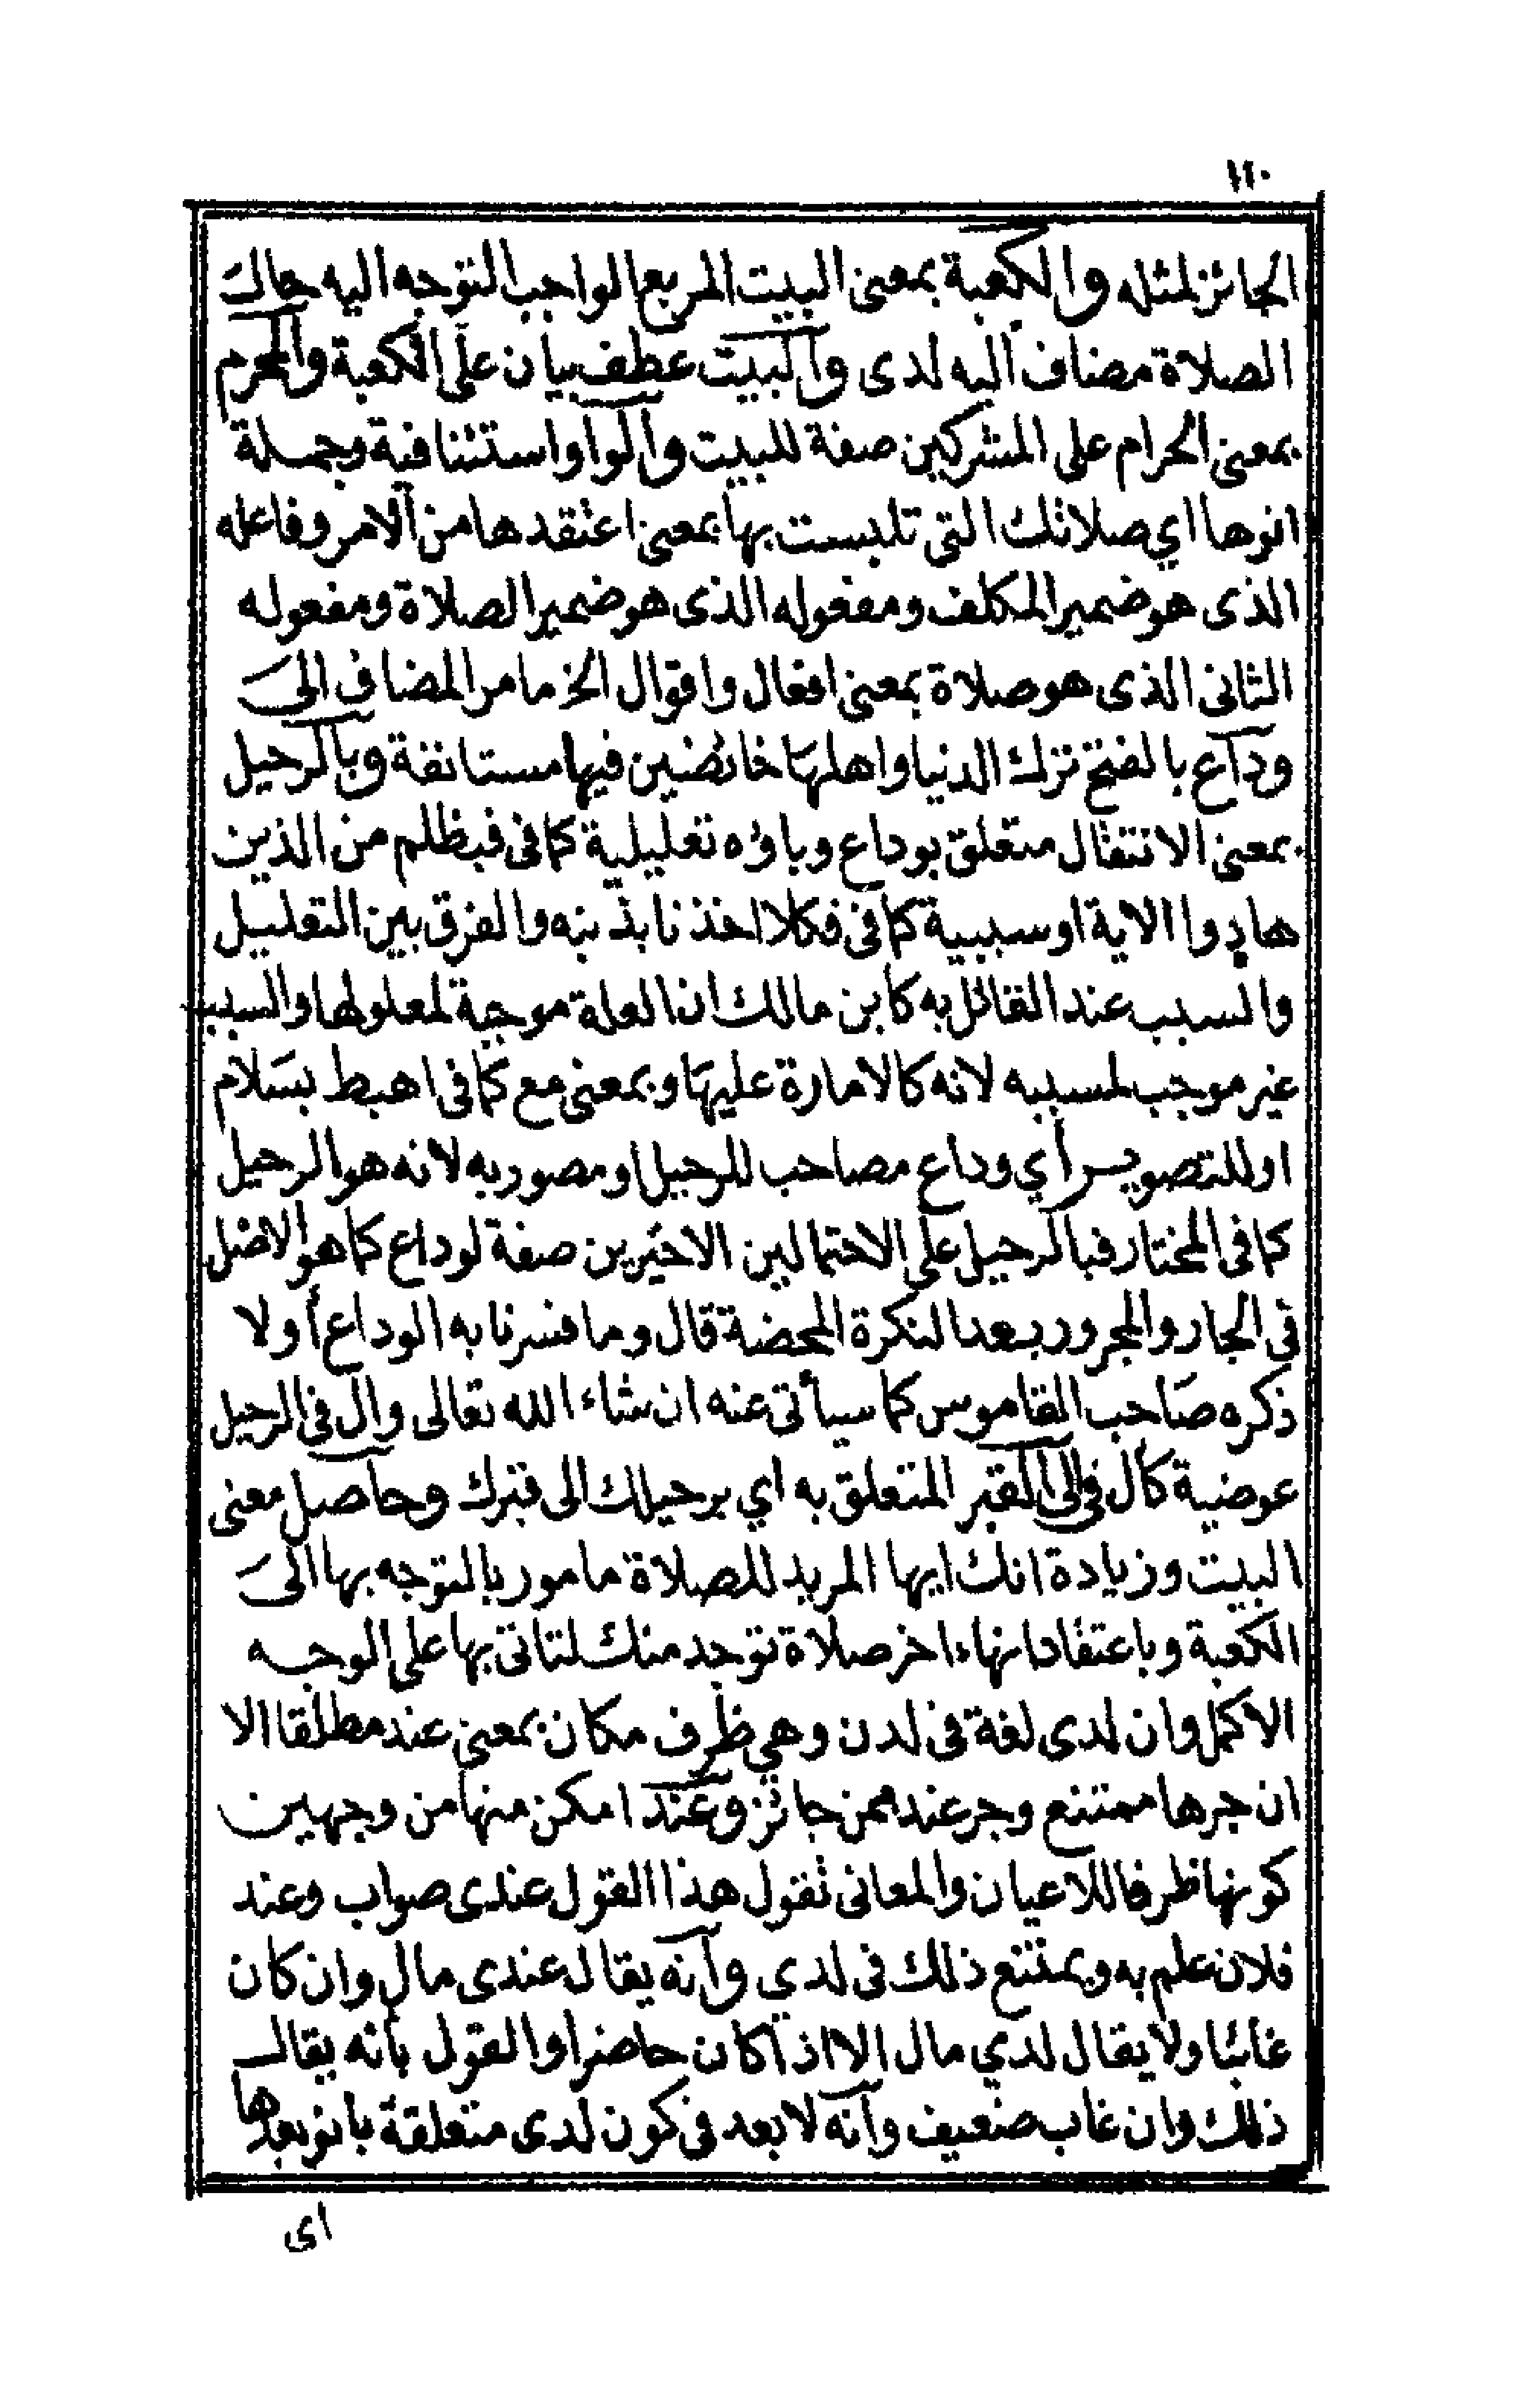 ١٢٠
الجائز لمثله والكعبة بمعنى البيت المربع الواجب التوجه اليه حال
الصلاة مضاف اليه لدى والبيت عطف بيان على الكعبة والمحرم
بمعنى الحرام على المشركين صفة للبيت والواو استئنافية وجملة
انوها اي صلاتك التى تلبست بها بمعنى اعتقدها من الامر وفاعله
الذى هو ضمير المكلف ومفعوله الذى هو ضمير الصلاة ومفعوله
الثانى الذى هو صلاة بمعنى افعال واقوال الخ ما مر المضاف الى
وداع بالفتح ترك الدنيا واهلها خائضين فيها مستانفة وبالرحيل
بمعنى الانتقال متعلق بوداع وباؤه تعليلية كما فى فبظلم من الذين
هادوا الاية او سببية كما فى فكلا اخذنا بذنبه والفرق بين التعليل
والسبب عند القائل به كابن مالك ان العلة موجبة لمعلولها والسبب
غير موجب لمسببه لانه كالامارة عليها وبمعنى مع كما فى اهبط بسلام
او للتصوير أي وداع مصاحب للرحيل او مصور به لانه هو الرحيل
كما فى المختار فبالرحيل على الاحتمالين الاخيرين صفة لوداع كما هو الافضل
فى الجار والمجرور بعد النكرة المحضة قال وما فسرنا به الوداع أولا
ذكره صاحب القاموس كما سيأتى عنه ان شاء الله تعالى وال فى الرحيل
عوضية كأل فى الى القبر المتعلق به اي برحيلك الى قبرك وحاصل معنى
البيت وزيادة انك ايها المريد للصلاة مامور بالتوجه بها الى
الكعبة وباعتقاد انهاء اخر صلاة توجد منك لتاتى بها على الوجه
الاكمل وان لدى لغة فى لدن وهي ظرف مكان بمعنى عند مطلقا الا
ان جرها ممتنع وجر عند بمن جائز وعند امكن منها من وجهين
كونها ظرفا للاعيان والمعانى تقول هذا القول عندى صواب وعند
فلان علم به ويمتنع ذلك فى لدي وانه يقال عندى مال وان كان
غائبا ولا يقال لدي مال الا اذا كان حاضرا والقول بأنه يقال
ذلك وان غاب ضعيف وانه لا بعد فى كون لدى متعلقة بانو بعدها
اى